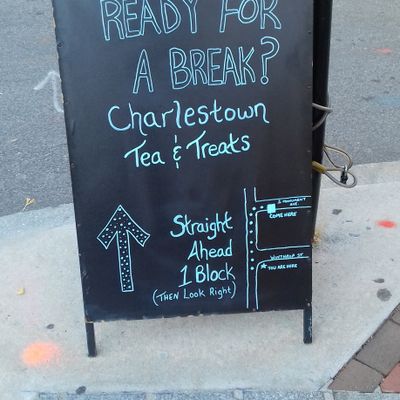 READY FOR
A BREAK?
Charlestown
Tea & Treats
Straight
Ahead
1 Block
(THEN LOOK RIGHT)
MONUMENT
AVE.
COME HERE
WINTHROP ST
YOU ARE HERE